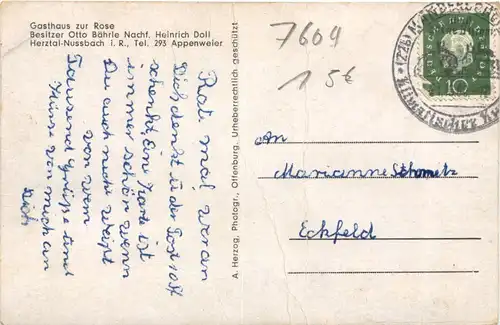 Gasthaus zur Rose
Besitzer Otto Böhrle Nachf. Heinrich Doll
Herztal-Nussbach i. R., Tel. 293 Appenweier
7609
1 5€
DEUTSCHE BUNDESPOST
10
A. Herzog, Photogr., Offenburg, Urheberrechtlich geschützt
An
Marianne Schmetz
Eckfeld
Rat mal woran
Dich denkt u. der Post
schenkt Eine Karte ist
immer schön wenn
Du auch nicht weißt
von wem
Tausend Grüße und
Küsse von mich an
dich